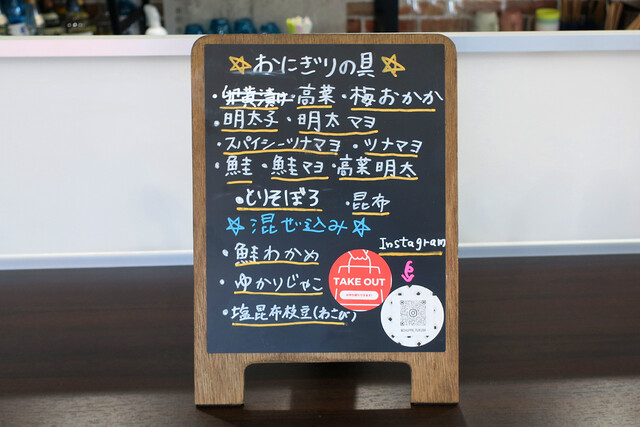 ☆おにぎりの具☆
・卵黄漬け・高菜・梅おかか
・明太子・明太マヨ
・スパイシーツナマヨ・ツナマヨ
・鮭・鮭マヨ・高菜明太
・とりそぼろ・昆布
☆混ぜ込み☆
・鮭わかめ
・ゆかりじゃこ
・塩昆布枝豆(わさび)
Instagram
TAKE OUT